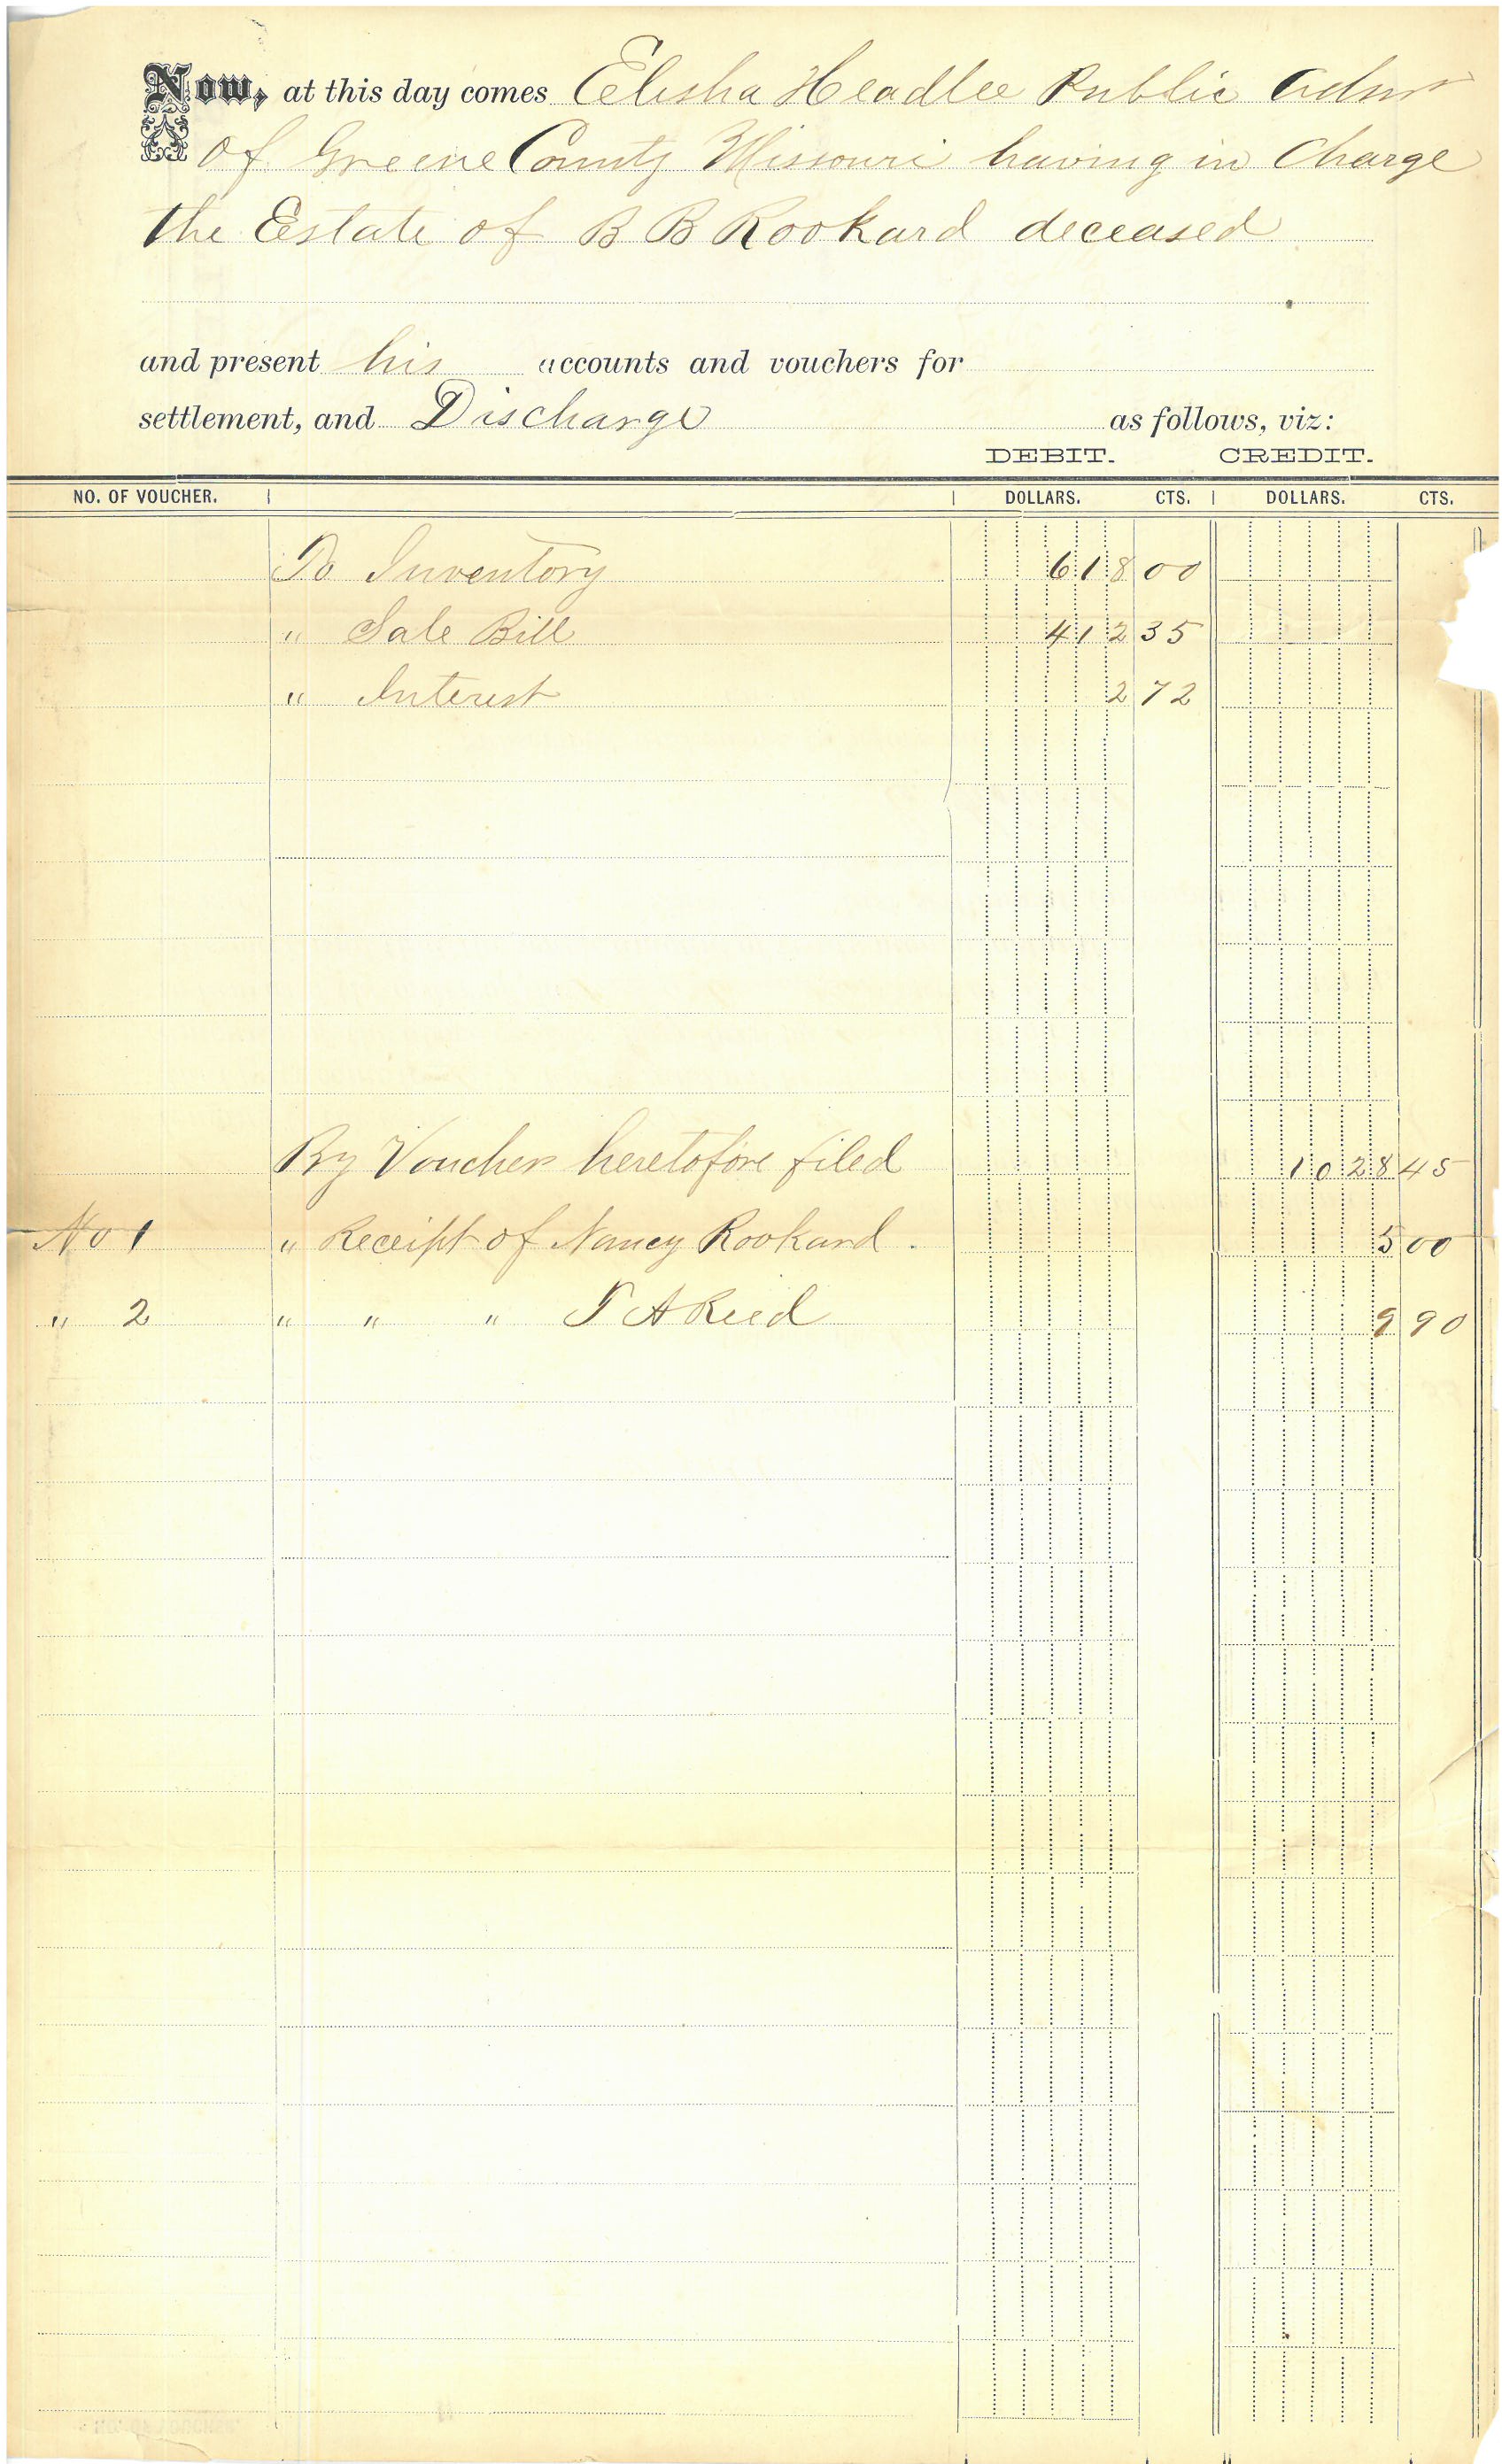 Now, at this day comes Elisha Headlee Public Admr
of Greene County Missouri having in Charge
the Estate of B B Rookard deceased
and present his accounts and vouchers for
settlement, and Discharge as follows, viz:
DEBIT. CREDIT.
NO. OF VOUCHER. DOLLARS. CTS. DOLLARS. CTS.
To Inventory 618 00
" Sale Bill 412 35
" Interest 2 72
By Vouchers heretofore filed 1028 45
No 1 " Receipt of Nancy Rookard . 5 00
" 2 " " " T A Reed 9 90